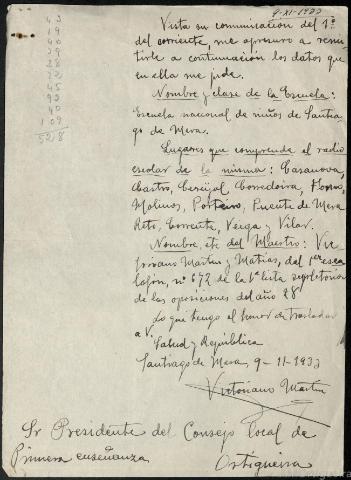 9-XI-1933
43
19
40
29
28
72
45
92
40
109
528
Vista su comunicación del 1º
del corriente, me apresuro a remi-
tirle a continuación los datos que
en ella me pide.
Nombre y clase de la Escuela:
Escuela nacional de niños de Santia-
go de Mera.
Lugares que comprende el radio
escolar de la misma: Casanova,
Castro, Corredoira,
Molinos, Porteiro, Puente de Mera
Reto, Torrente, Veiga y Vilar.
Nombre, etc del Maestro: Vic-
toriano Martín y Matías, del 1er esca-
lafón, nº 672 de la 1ª lista supletoria
de las oposiciones del año 28
Lo que tengo el honor de trasladar
a V.
Salud y República
Santiago de Mera, 9-11-1933
Victoriano Martín
Sr Presidente del Consejo local de
Primera enseñanza
Ortigueira